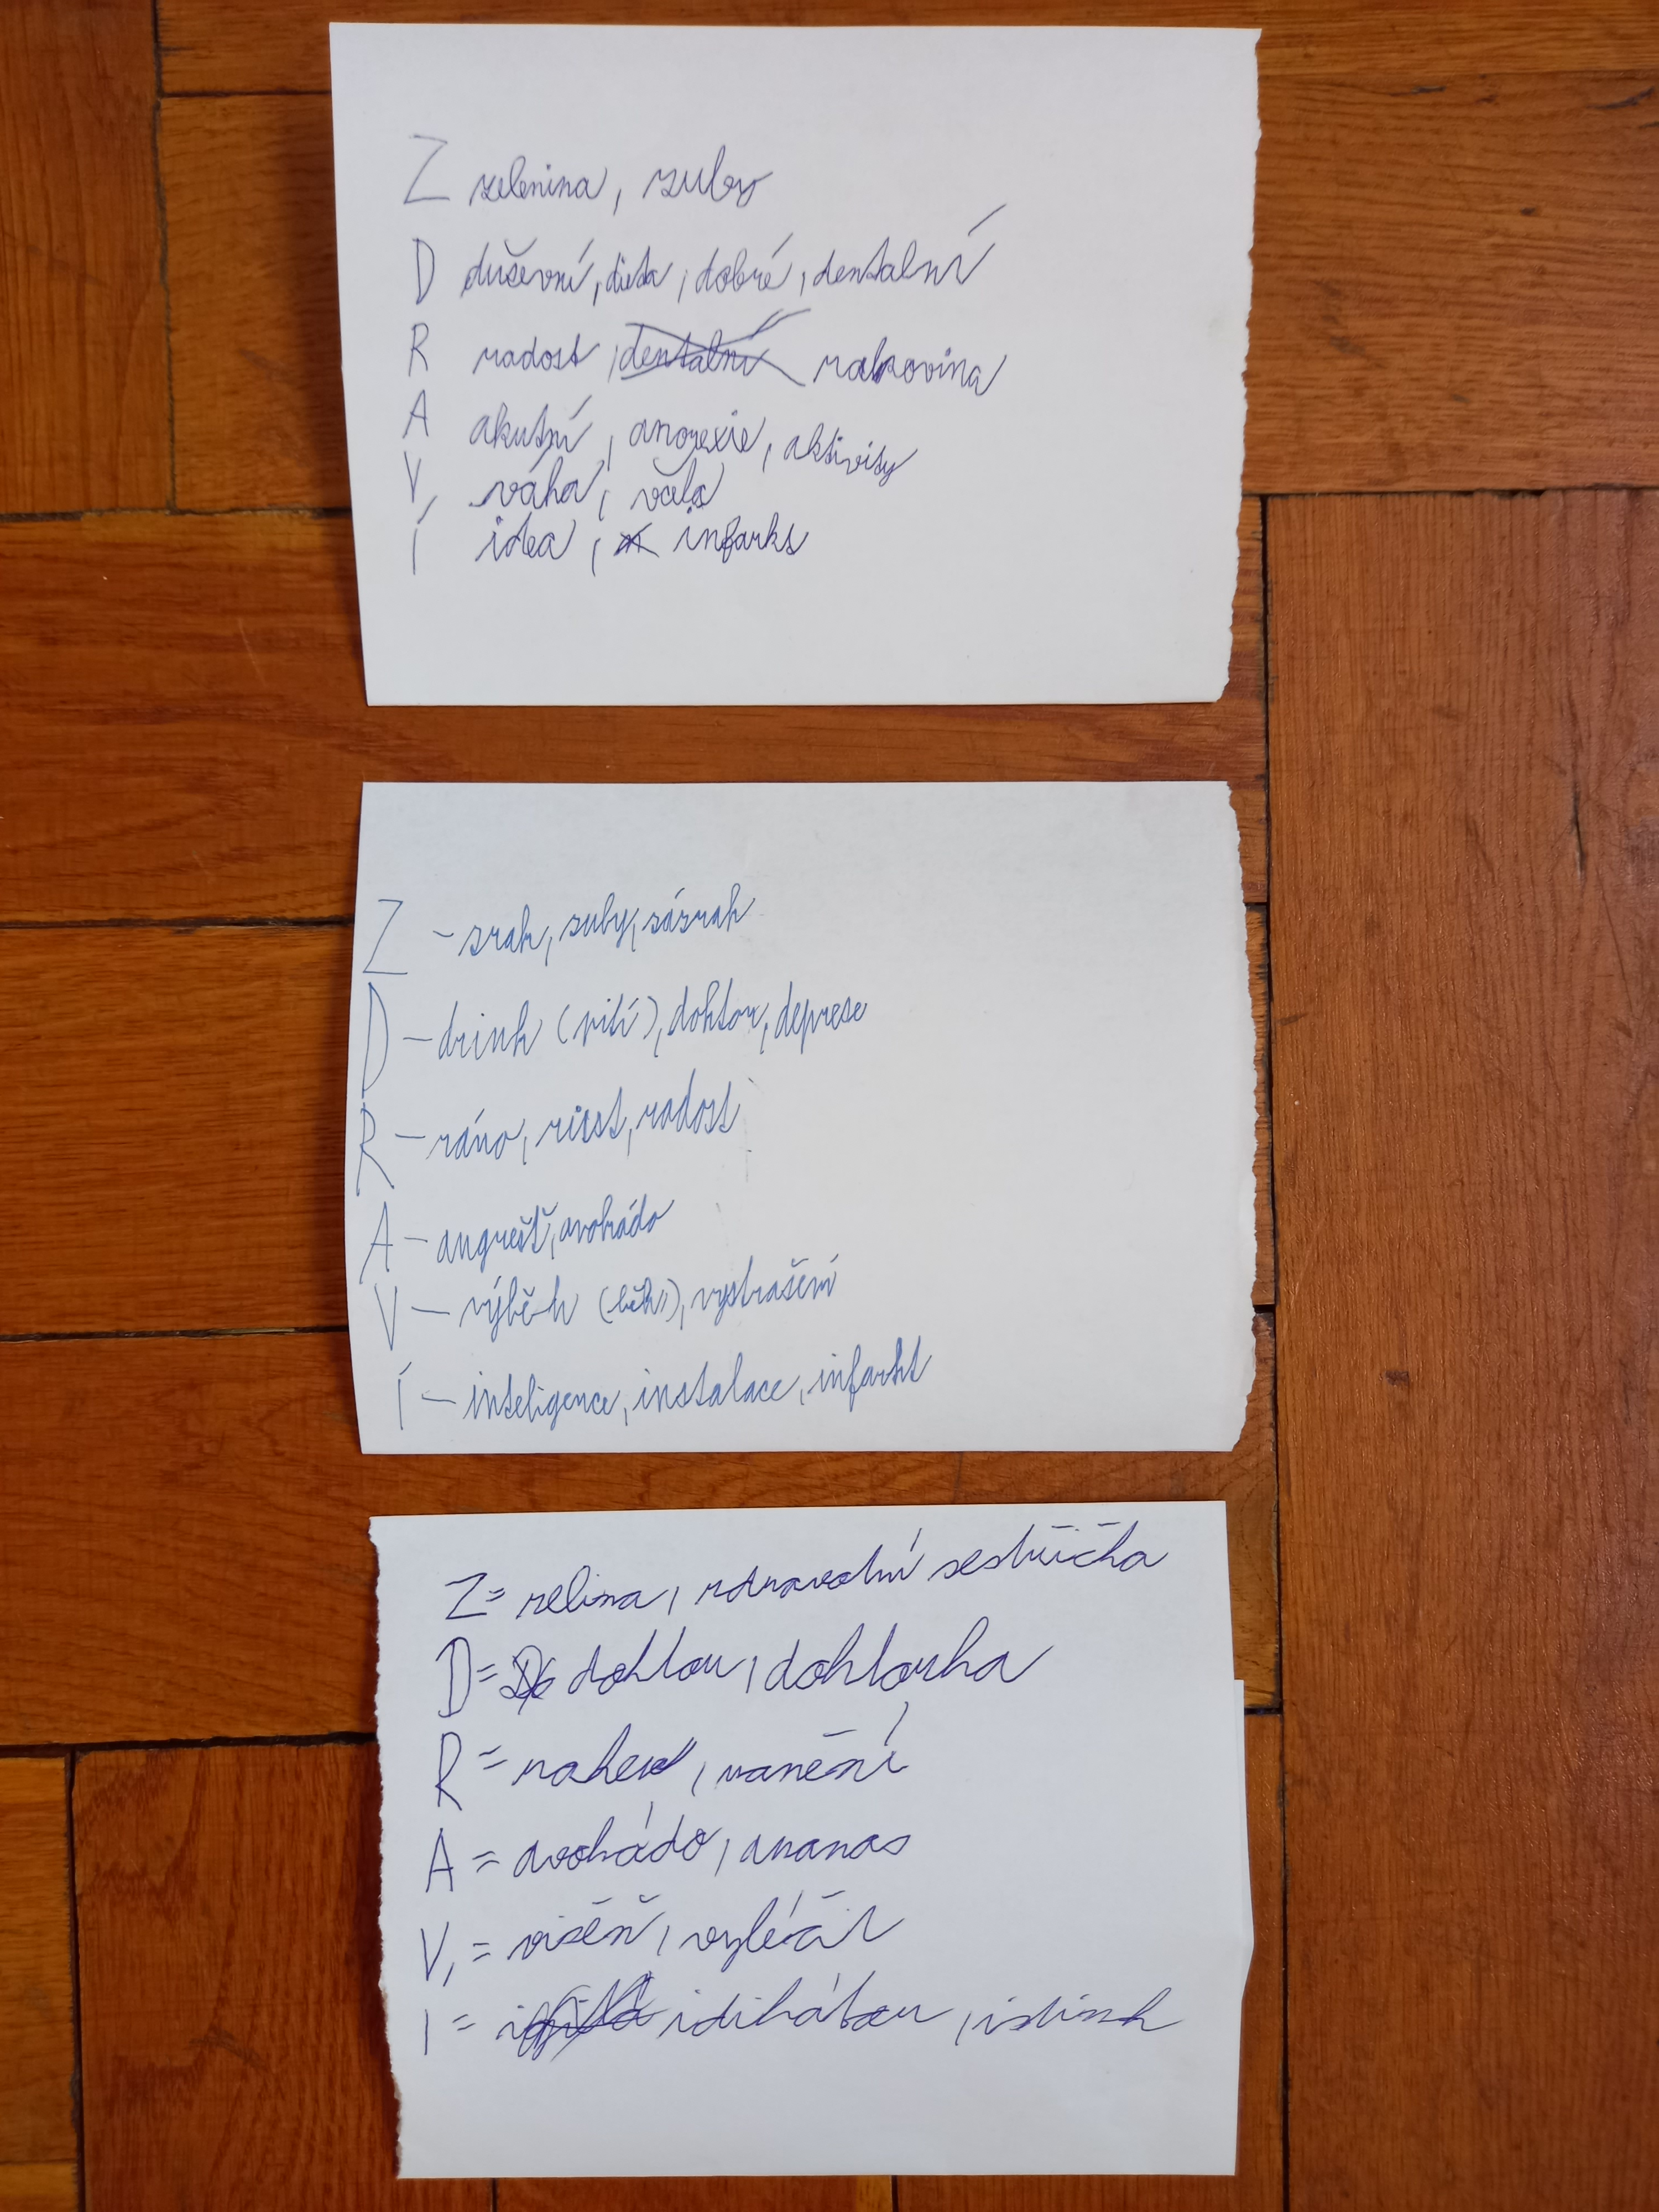 Z zelenina, zuby
D duševní, dieta, dobré, dentalní
R radost, dentalní rakovina
A akutní, anorexie, aktivity
V, váha, včela
Í idea, infarkt
Z - zrak, zuby, zázrak
D - drink (pití), doktor, deprese
R - ráno, risst, radost
A - angrešt, avokádo
V - výběh (běh), vystrašení
Í - inteligence, instalace, infarkt
Z = zelina, zdravotní sestřička
D = doktor, doktorka
R = raket, ranění
A = avokádo, ananas
V, = višěň, vyléčit
I = idikátor, istink